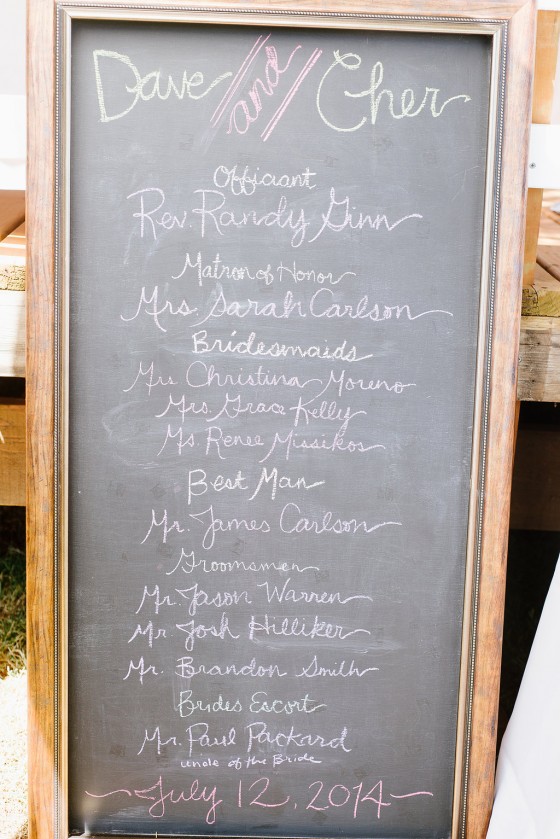 Dave and Cher
Officiant
Rev. Randy Ginn
Matron of Honor
Mrs. Sarah Carlson
Bridesmaids
Mrs. Christina Moreno
Mrs. Grace Kelly
Ms. Renee Missikos
Best Man
Mr. James Carlson
Groomsmen
Mr. Jason Warren
Mr. Josh Hilliker
Mr. Brandon Smith
Brides Escort
Mr. Paul Packard
uncle of the Bride
July 12, 2014